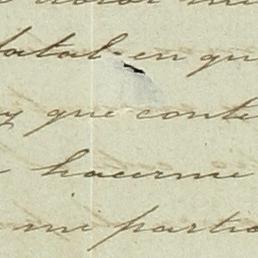 fatal en qu
y que conte
hacerme
mi partic